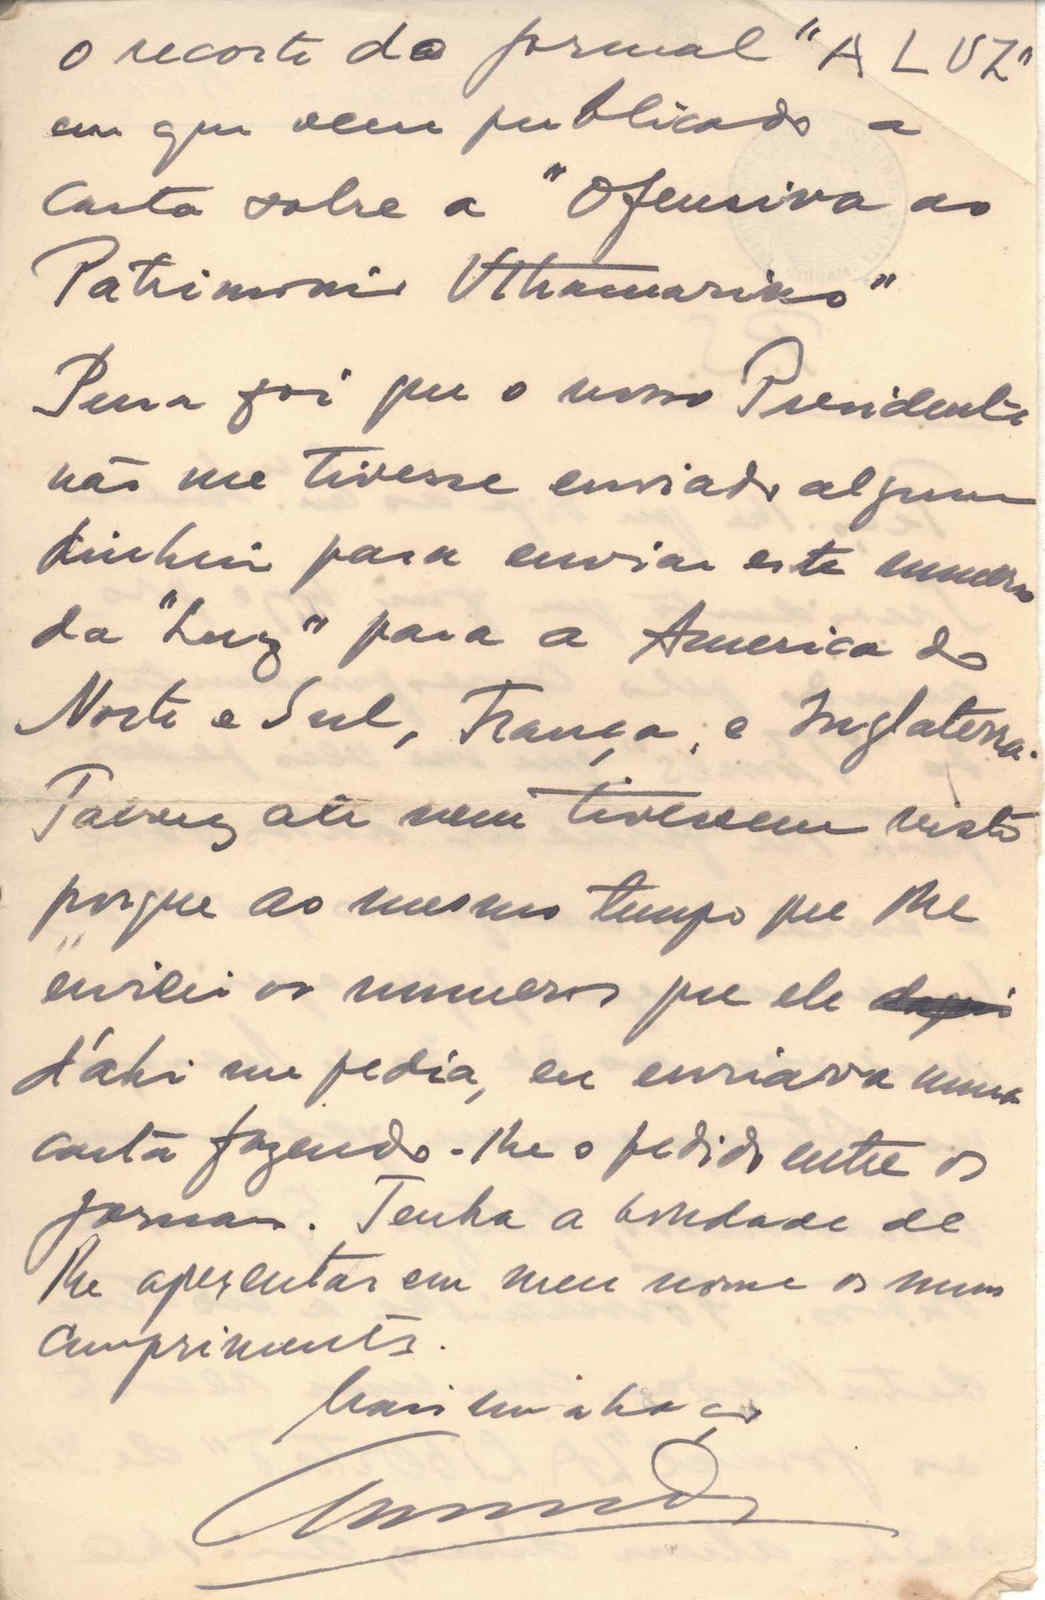 o recorte do jornal "A LUZ"
em que vem publicado a
Carta sobre a "Ofensiva ao
Patrimonio Ultramarino"
Pena foi que o nosso Presidente
não me tivesse enviado algum
dinheiro para enviar este numero
da "Luz" para a America do
Norte e Sul, França, e Inglaterra.
Talvez até nem tivessem visto
porque ao mesmo tempo que lhe
enviei os numeros que ele
d'ahi me pedia, eu enviava uma
carta fazendo-lhe o pedido entre os
jornaes. Tenha a bondade de
lhe apresentar em meu nome os meus
cumprimentos.
Mais um abraço